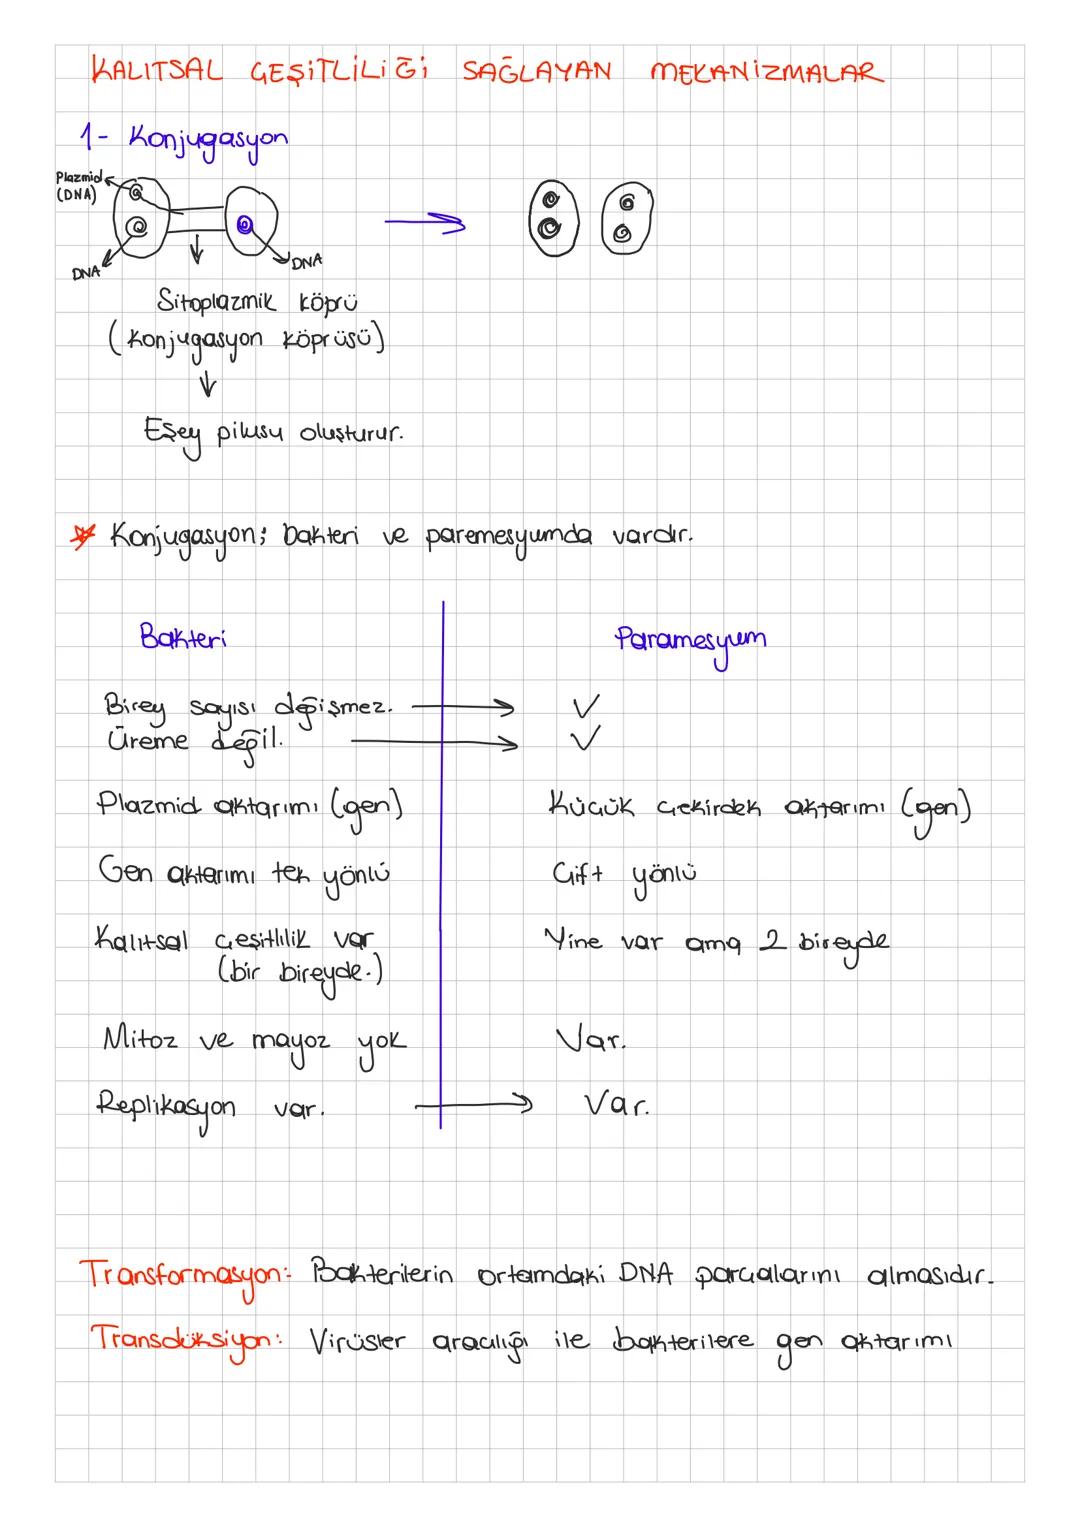 KALITSAL ÇEŞİTLİLİĞİ SAĞLAYAN MEKANİZMALAR
1- Konjugasyon
Plazmid
(DNA)
DNA
DNA
Sitoplazmik köprü
(Konjugasyon köprüsü)
Eşey pilusu oluşturur.
Konjugasyon; bakteri ve paremesyumda vardır.
Bakteri Paramesyum
Birey sayısı değişmez. → ✓
Üreme değil. → ✓
Plazmid aktarımı (gen) Küçük çekirdek aktarımı (gen)
Gen aktarımı tek yönlü Çift yönlü
Kalıtsal çeşitlilik var Yine var ama 2 bireyde
(bir bireyde.)
Mitoz ve mayoz yok Var.
Replikasyon var. → Var.
Transformasyon: Bakterilerin ortamdaki DNA parçalarını almasıdır.
Transdüksiyon: Virüsler aracılığı ile bakterilere gen aktarımı